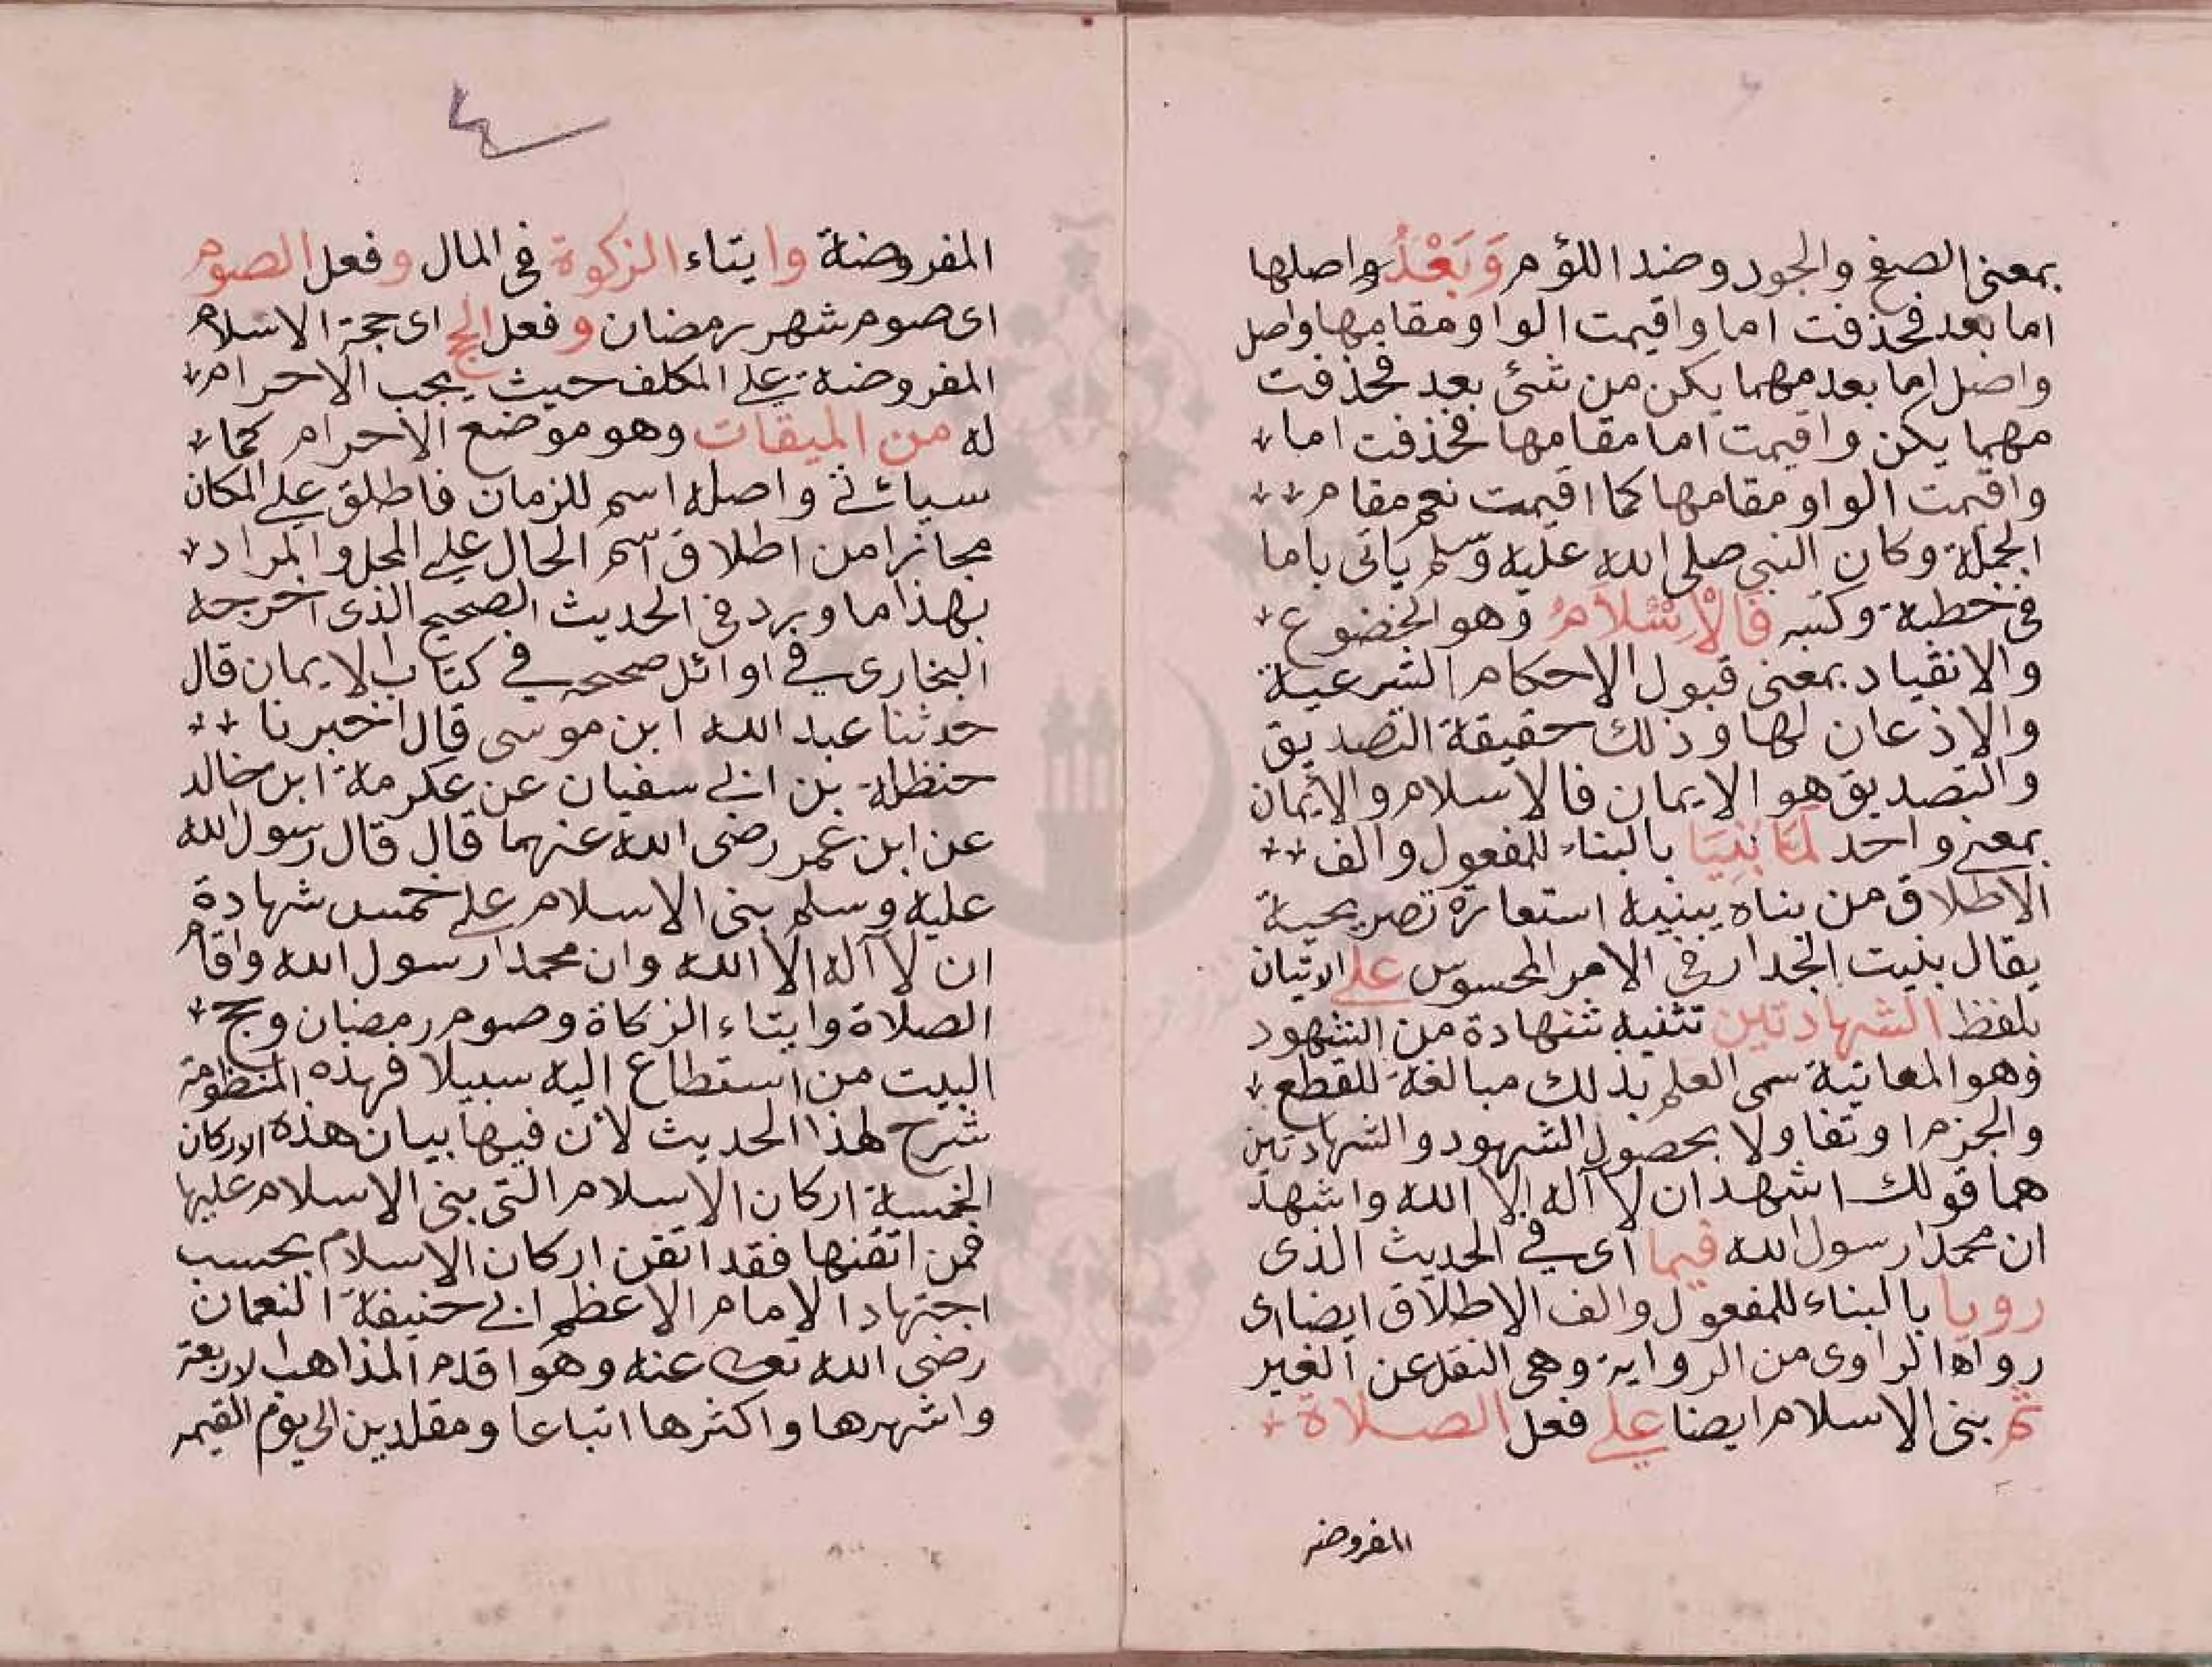 بمعنى الصفح والجود وضد اللؤم وَبَعْدُ واصلها
اما بعد فحذفت اما واقيمت الواو مقامها واصل
واصل اما بعد مهما يكن من شئ بعد فحذفت
مهما يكن واقيمت اما مقامها فحذفت اما
واقيمت الواو مقامها كما اقيمت نعم مقام
الجملة وكان النبي صلى الله عليه وسلم يأتى باما
فى خطبه وكتبه فَالْاِسْلَامُ وهو الخضوع
والانقياد بمعنى قبول الاحكام الشرعية
والاذعان لها وذلك حقيقة التصديق
والتصديق هو الايمان فالاسلام والايمان
بمعنى واحد لمَّا بُنِيَا بالبناء للمفعول والف
الاطلاق من بناه يبنيه استعارة تصريحية
يقال بنيت الجدار فى الامر المحسوس على الاتيان
بلفظ الشهادتين تثنية شهادة من الشهود
وهو المعاينة سمى العلم بذلك مبالغة للقطع
والجزم او تفاولا بحصول الشهود والشهادتين
هما قولك اشهد ان لا اله الا الله واشهد
ان محمدا رسول الله فيما اى فى الحديث الذى
رويا بالبناء للمفعول والف الاطلاق ايضا اى
رواه الراوى من الرواية وهى النقل عن الغير
ثم بنى الاسلام ايضا على فعل الصلاة
المفروضه
المفروضة وايتاء الزكوة فى المال وفعل الصوم
اى صوم شهر رمضان وفعل الحج اى حجة الاسلام
المفروضة على المكلف حيث يجب الاحرام
له من الميقات وهو موضع الاحرام كما
سيأتى واصله اسم للزمان فاطلق على المكان
مجازا من اطلاق اسم الحال على المحل والمراد
بهذا ما ورد فى الحديث الصحيح الذى اخرجه
البخارى فى اوائل صحيحه فى كتاب الايمان قال
حدثنا عبد الله ابن موسى قال اخبرنا
حنظلة بن ابى سفيان عن عكرمة ابن خالد
عن ابن عمر رضى الله عنهما قال قال رسول الله
عليه وسلم بنى الاسلام على خمس شهادة
ان لا آله الا الله وان محمدا رسول الله واقام
الصلاة وايتاء الزكاة وصوم رمضان وحج
البيت من استطاع اليه سبيلا فهذه المنظومة
شرح لهذا الحديث لأن فيها بيان هذه الاركان
الخمسة اركان الاسلام التى بنى الاسلام عليها
فمن اتقنها فقد اتقن اركان الاسلام بحسب
اجتهاد الامام الاعظم ابى حنيفة النعمان
رضى الله تعالى عنه وهو اقدم المذاهب الاربعة
واشهرها واكثرها اتباعا ومقلدين الى يوم القيمه